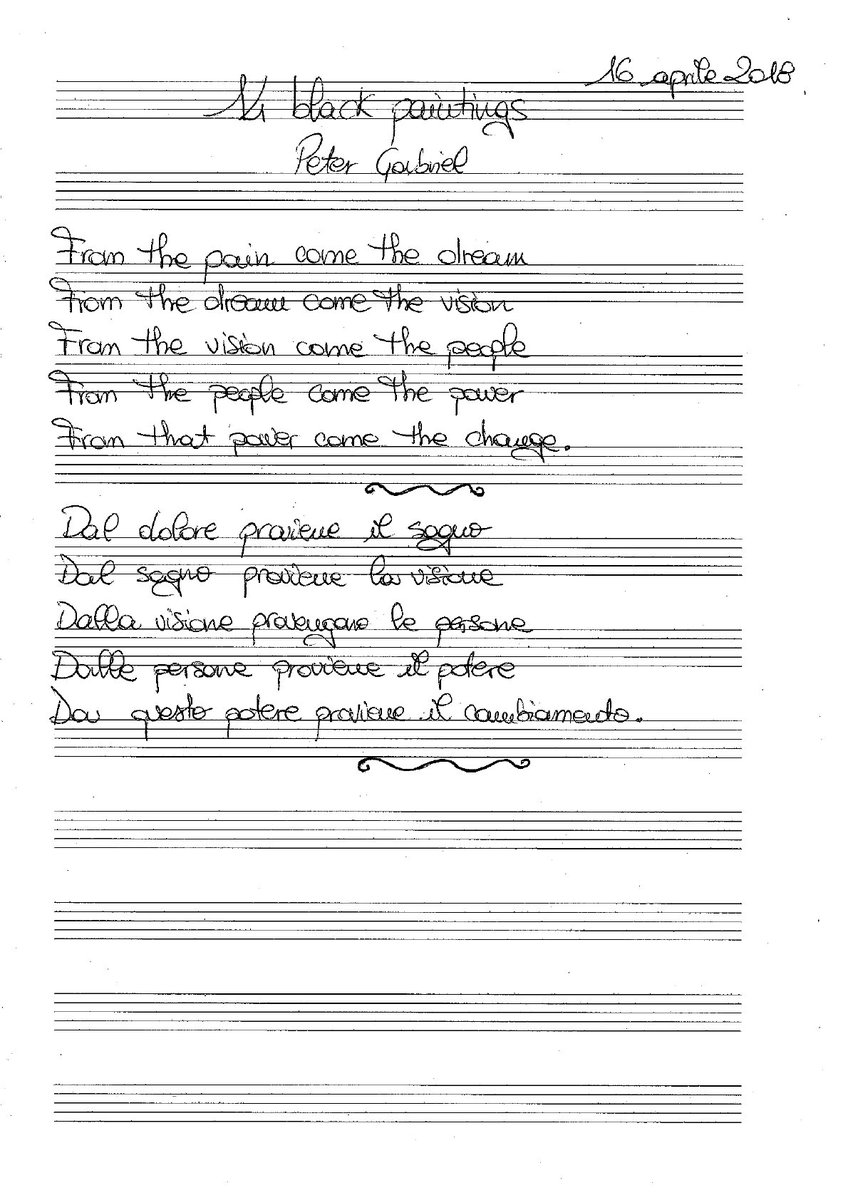 16 aprile 2018
14 black paintings
Peter Gabriel
From the pain come the dream
From the dream come the vision
From the vision come the people
From the people come the power
From that power come the change.
Dal dolore proviene il sogno
Dal sogno proviene la visione
Dalla visione provengano le persone
Dalle persone proviene il potere
Da questo potere proviene il cambiamento.